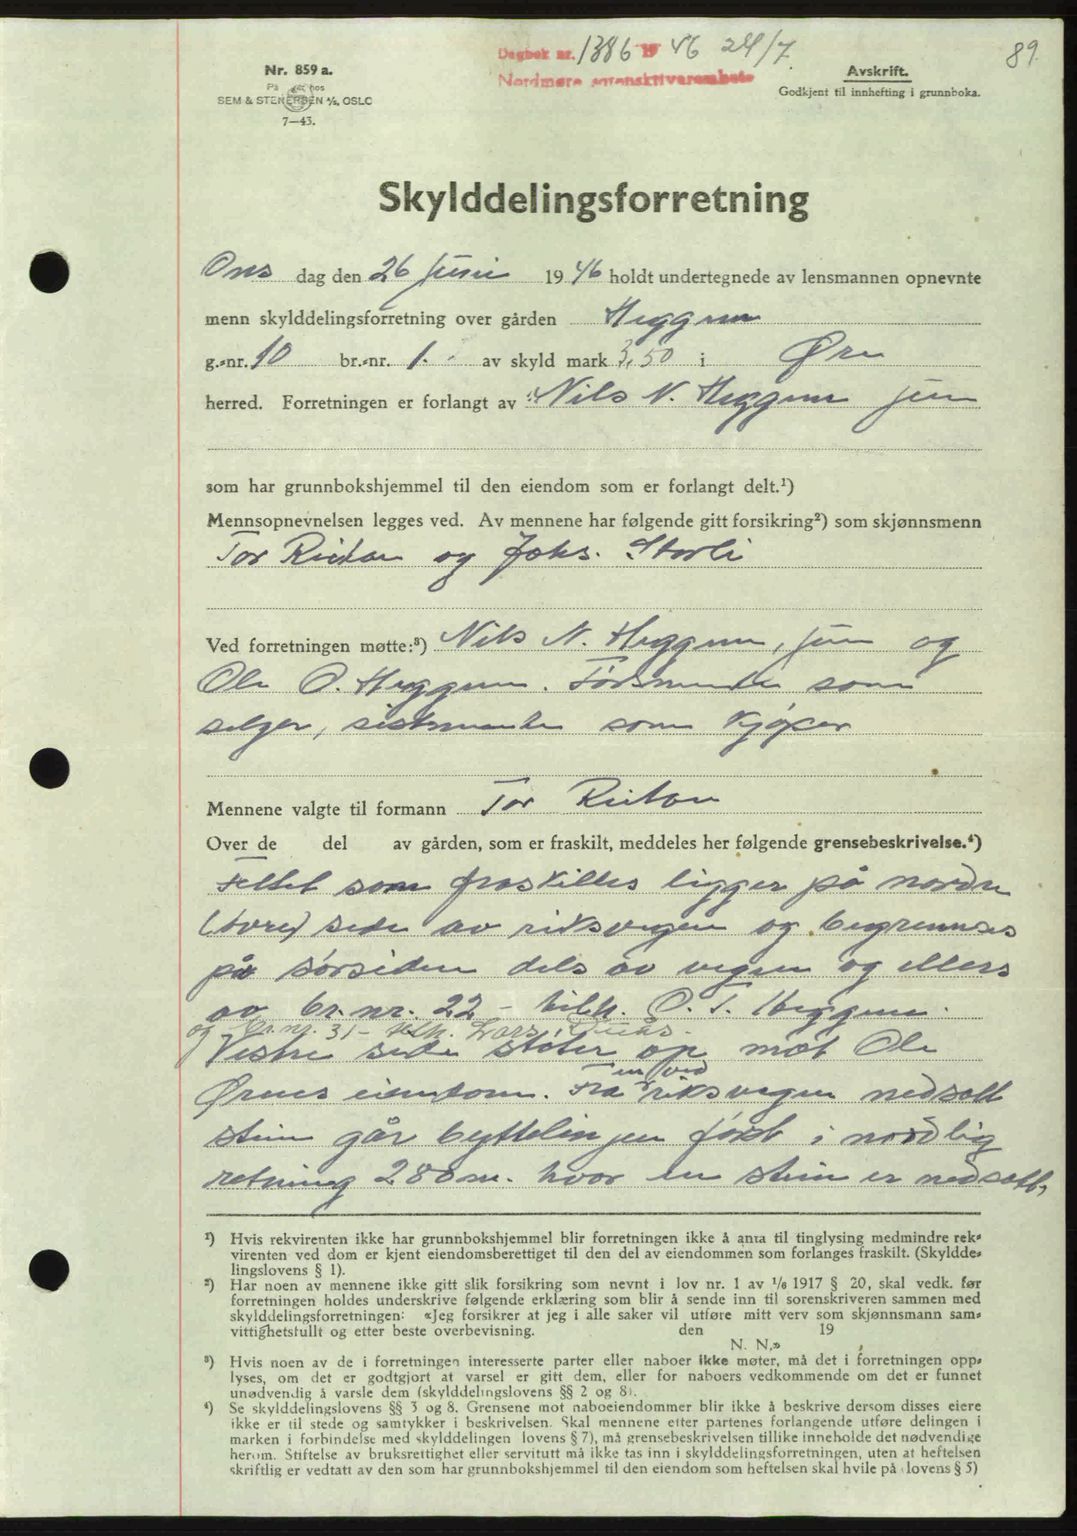 Dagbok nr. 1386 1946 24/7.
Nordmøre sorenskriverembete
89.
Nr. 859 a.
På hos
SEM & STENERSEN A/S, OSLO
7—43.
Avskrift.
Godkjent til innhefting i grunnboka.
Skylddelingsforretning
Ons dag den 26 juni 1946 holdt undertegnede av lensmannen opnevnte
menn skylddelingsforretning over gården Heggem
g.-nr. 10 br.-nr. 1. av skyld mark 3,50 i Øre
herred. Forretningen er forlangt av Nils N. Heggem jun
som har grunnbokshjemmel til den eiendom som er forlangt delt.¹)
Mennsopnevnelsen legges ved. Av mennene har følgende gitt forsikring²) som skjønnsmenn
Tor og Johs. Storli
Ved forretningen møtte:³) Nils N. Heggem, jun og
Ole O. Heggem. Førsnevnte som
selger, sistnevnte som kjøper
Mennene valgte til formann Tor
Over de del av gården, som er fraskilt, meddeles her følgende grensebeskrivelse.⁴)
Feltet som fraskilles ligger på nordre
(øvre) side av riksvegen og begrenses
på sørsiden dels av vegen og ellers
av br. nr. 22 – tilh. O. T. Heggem.
og br. nr. 31 – tilh. Lars
Vestre side støter op mot Ole
Ørnes eiendom. Fra en ved riksvegen nedsatt
stein går byttelinjen først i nordlig
retning 280 m. hvor en stein er nedsatt,
¹) Hvis rekvirenten ikke har grunnbokshjemmel blir forretningen ikke å anta til tinglysing medmindre rek-
virenten ved dom er kjent eiendomsberettiget til den del av eiendommen som forlanges fraskilt. (Skyldde-
lingslovens § 1).
²) Har noen av mennene ikke gitt slik forsikring som nevnt i lov nr. 1 av 1/6 1917 § 20, skal vedk. før
forretningen holdes underskrive følgende erklæring som blir å sende inn til sorenskriveren sammen med
skylddelingsforretningen: «Jeg forsikrer at jeg i alle saker vil utføre mitt verv som skjønnsmann sam-
vittighetsfullt og etter beste overbevisning. den 19
N. N.»
³) Hvis noen av de i forretningen interesserte parter eller naboer ikke møter, må det i forretningen opp-
lyses, om det er godtgjort at varsel er gitt dem, eller for naboers vedkommende om det er funnet
unødvendig å varsle dem (skylddelingslovens §§ 2 og 8).
⁴) Se skylddelingslovens §§ 3 og 8. Grensene mot naboeiendommer blir ikke å beskrive dersom disses eiere
ikke er til stede og samtykker i beskrivelsen. Skal mennene etter partenes forlangende utføre delingen i
marken i forbindelse med skylddelingen lovens § 7), må grensebeskrivelsen tillike inneholde det nødvendige
herom. Stiftelse av bruksrettighet eller servitutt må ikke tas inn i skylddelingsforretningen, uten at heftelsen
skriftlig er vedtatt av den som har grunnbokshjemmel til den eiendom som heftelsen skal hvile på (lovens § 5)